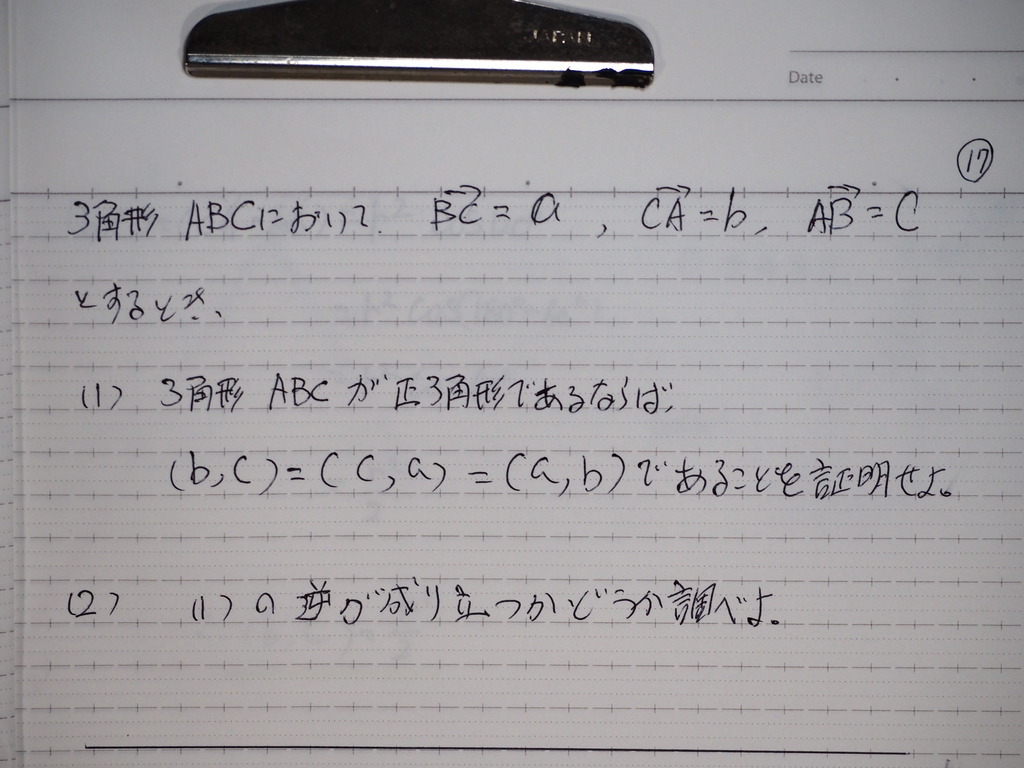 JAPAN
Date
⑰
3角形 ABCにおいて. \overrightarrow{BC} = a , \overrightarrow{CA} = b, \overrightarrow{AB} = C
とするとき、
(1) 3角形 ABC が 正3角形であるならば,
(b, C) = (C, a) = (a, b) であることを証明せよ。
(2) (1) の 逆が成り立つかどうか調べよ。